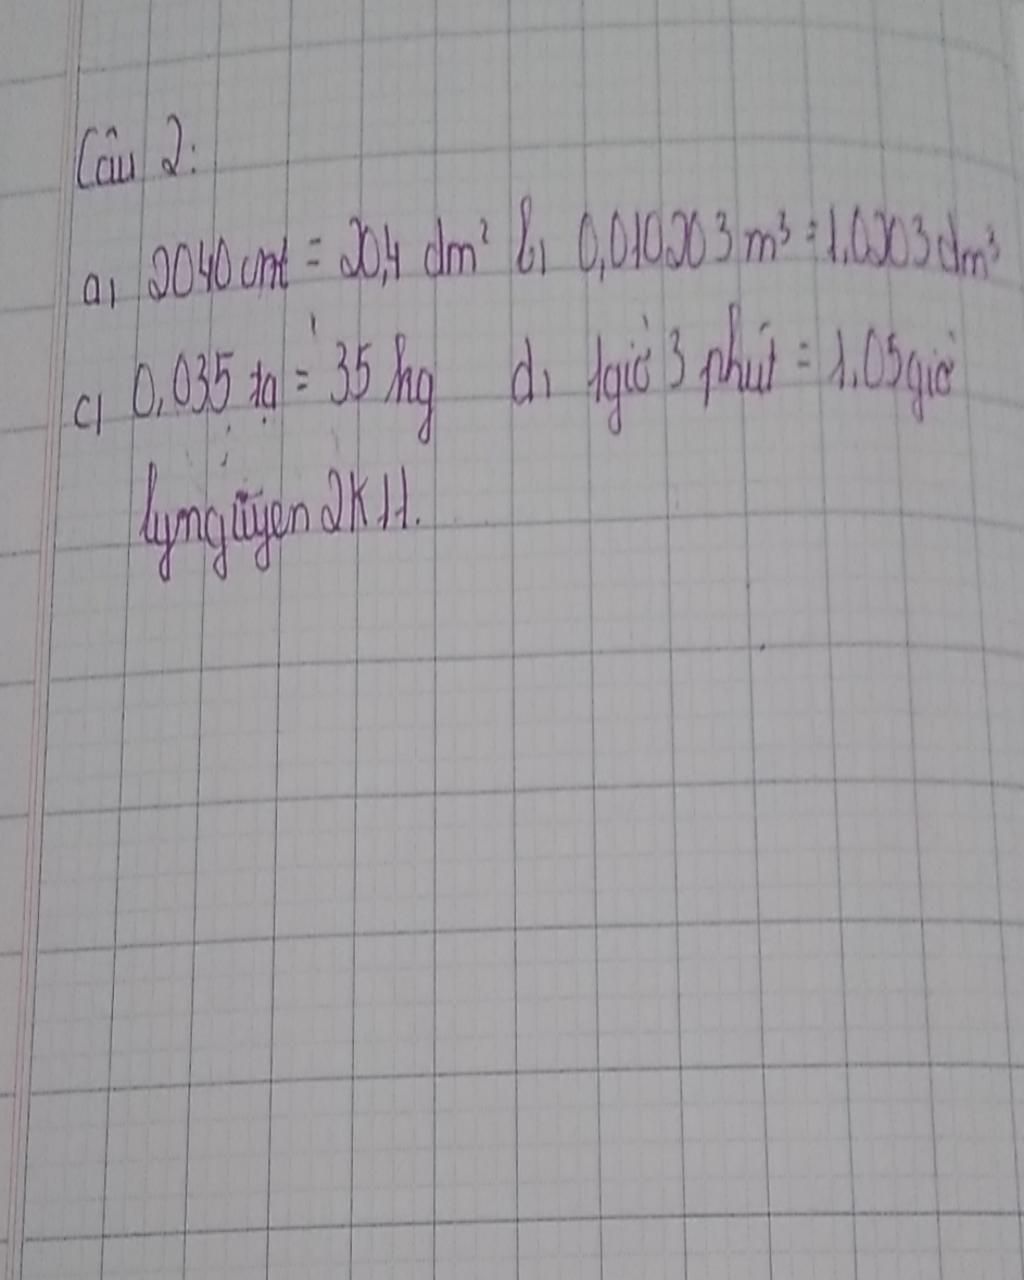 Câu 2:
a, 2040 cm² = 20,4 dm² b, 0,010203 m³ = 1,0203 dm³
c, 0,035 tạ = 35 kg d, 1 giờ 3 phút = 1,05 giờ
lymgũyen 2K11.